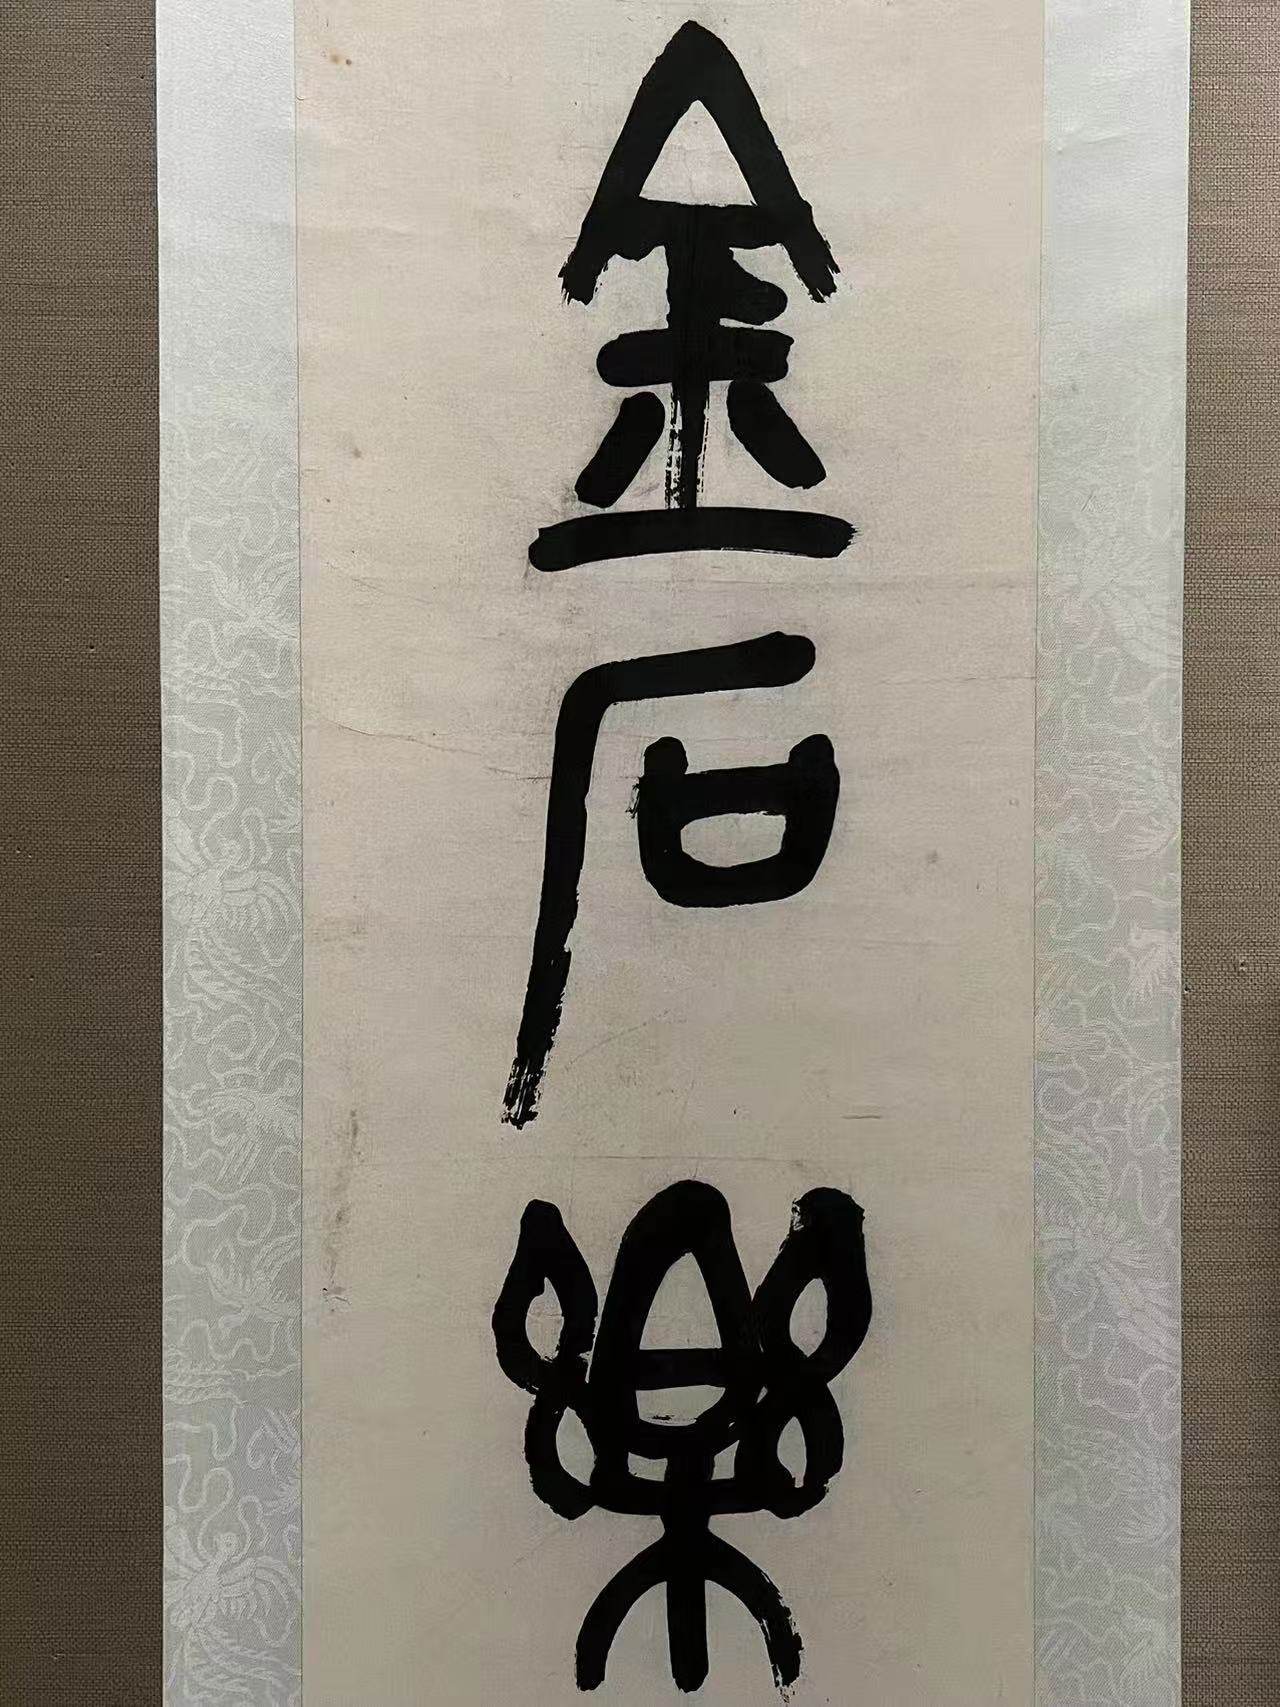 金石樂